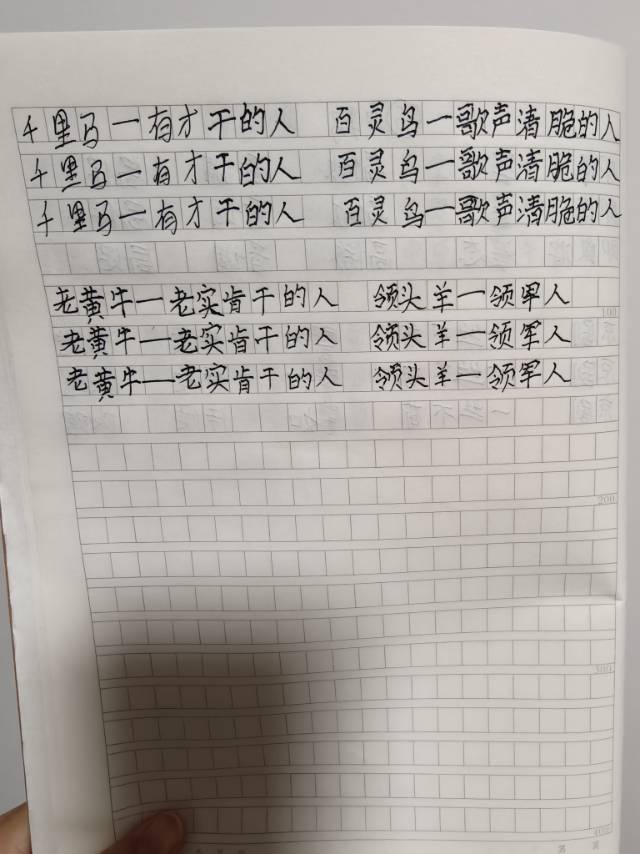 千里马一有才干的人 百灵鸟一歌声清脆的人
千里马一有才干的人 百灵鸟一歌声清脆的人
千里马一有才干的人 百灵鸟一歌声清脆的人
老黄牛一老实肯干的人 领头羊一领军人
100
老黄牛一老实肯干的人 领头羊一领军人
老黄牛一老实肯干的人 领头羊一领军人
200
300
400